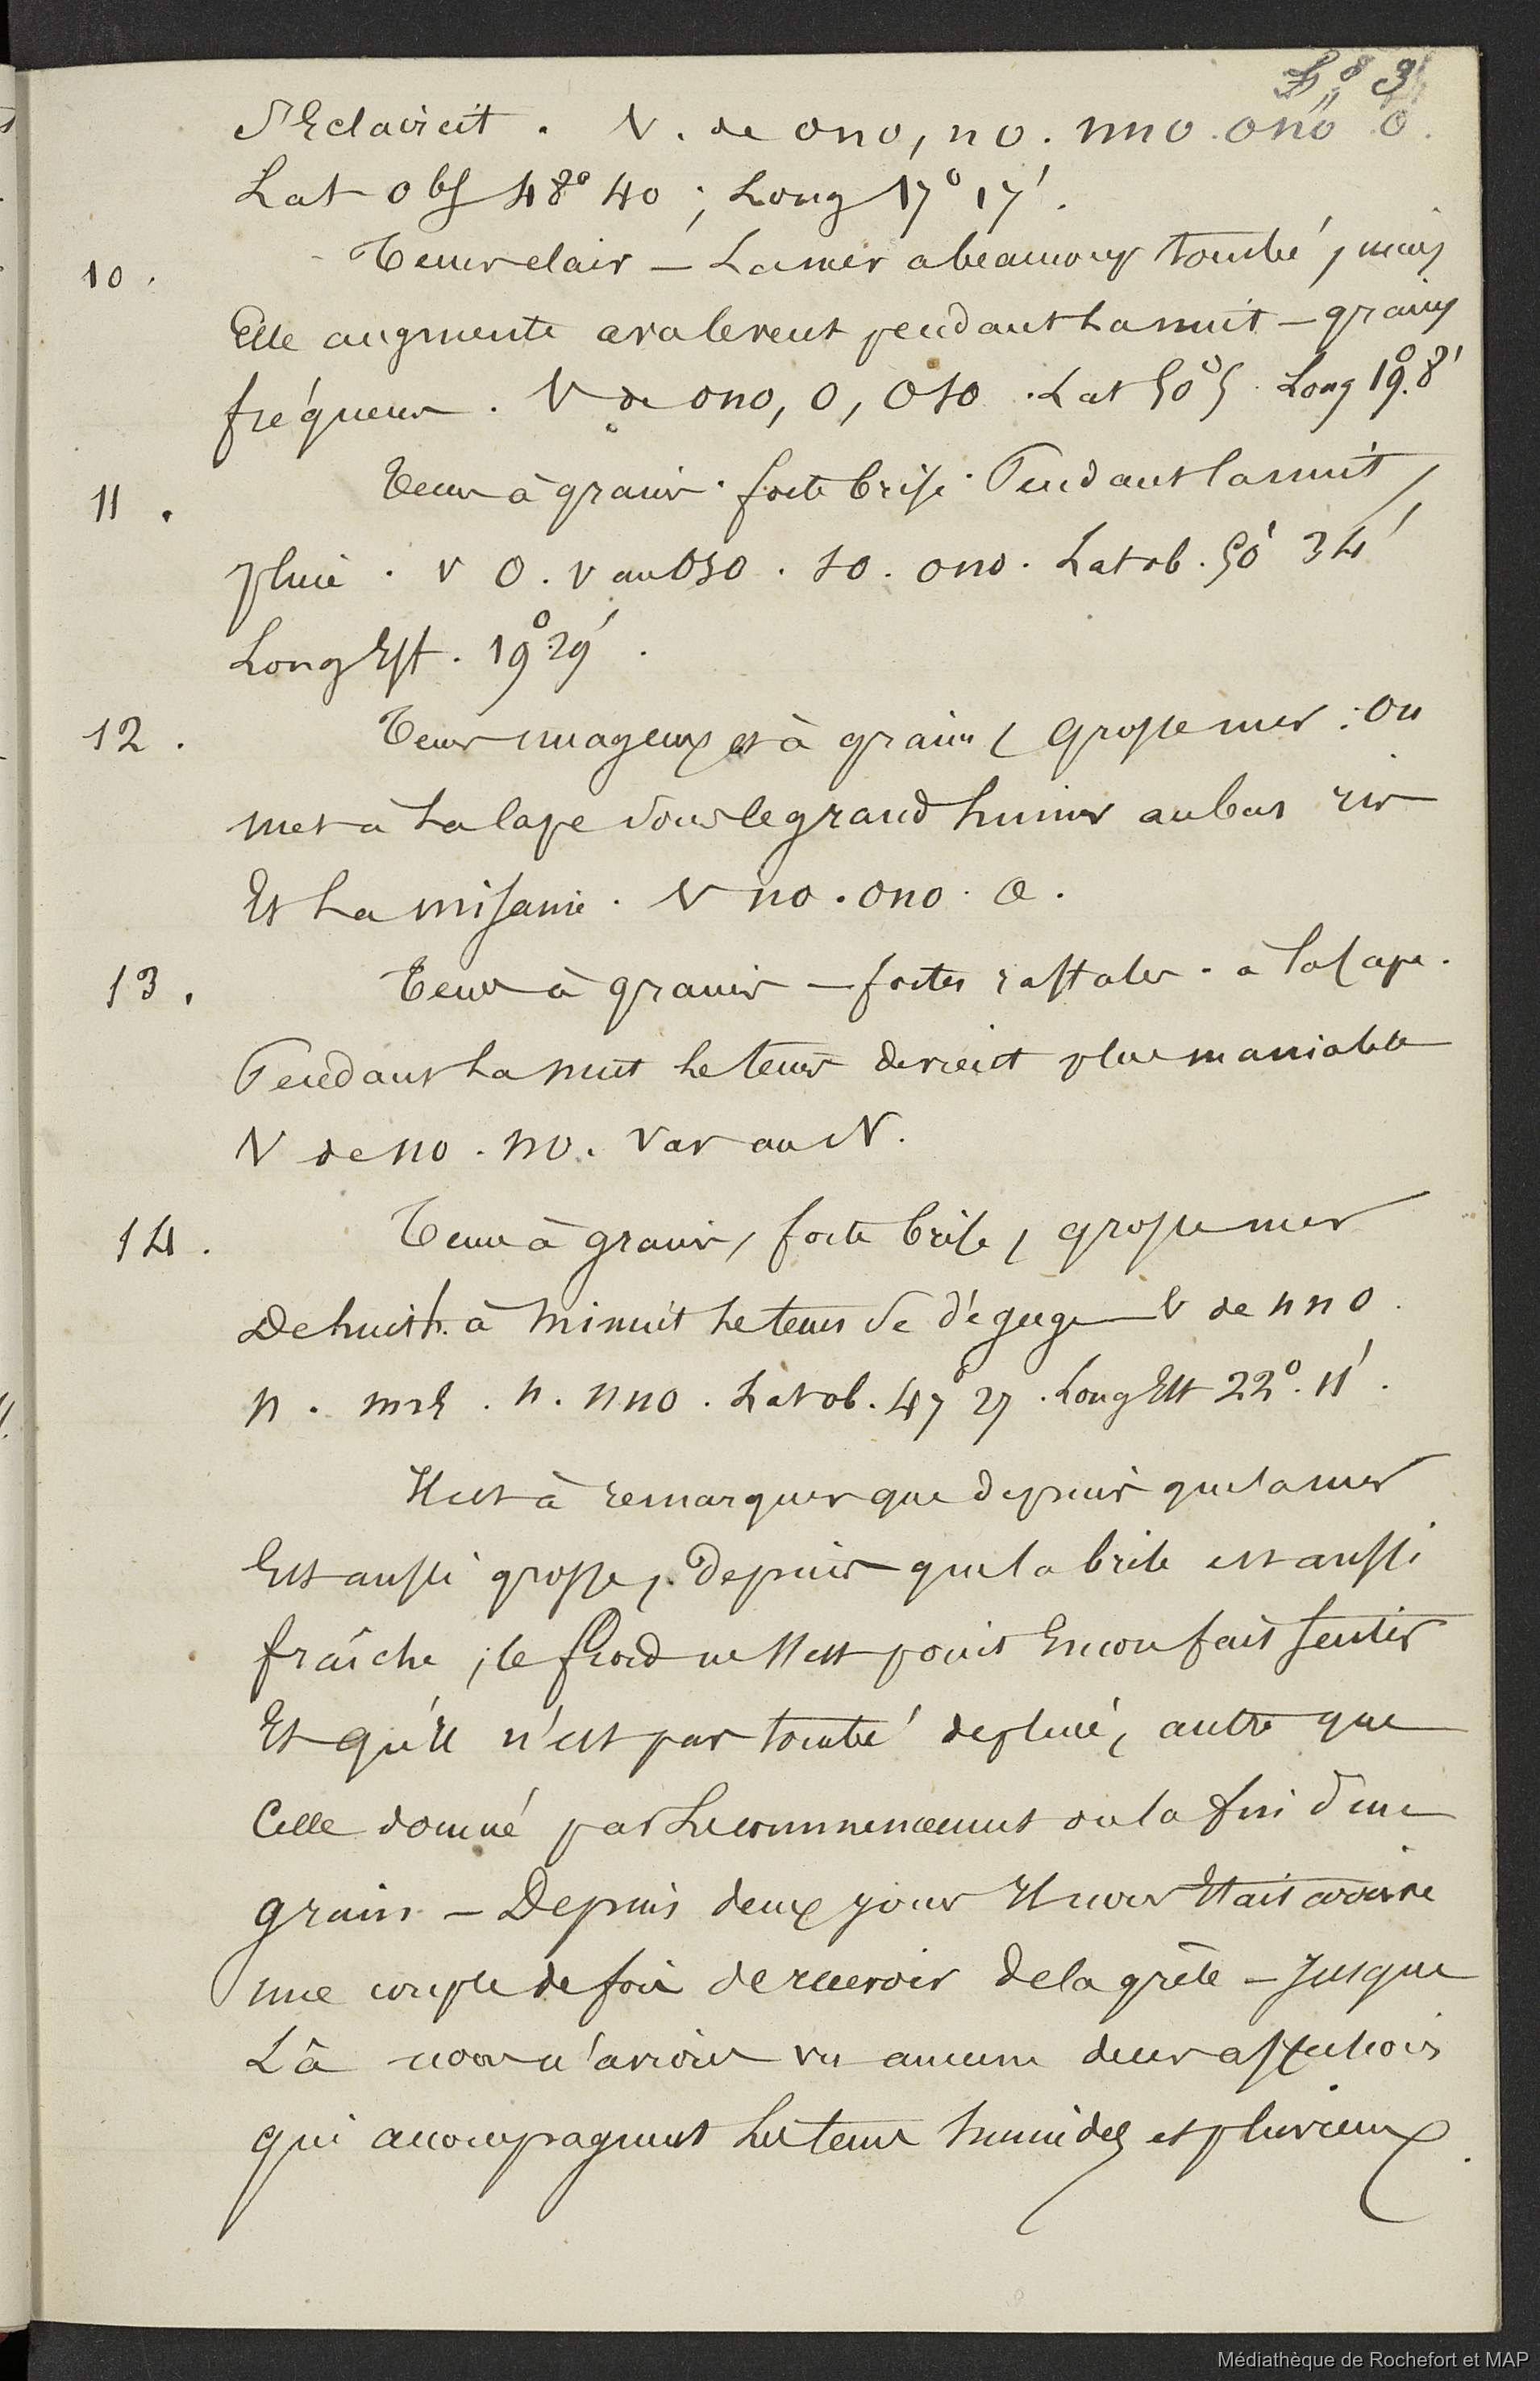 F° 3
S'Eclaircit. V. de ono, no. nno. ono o.
Lat obs 48° 40'; Long 17° 17'.
10. Tems clair — La mer a beaucoup tombé, mais
Elle augmente avec le vent pendant La nuit — grains
fréquens. V de ono, o, oso. Lat 50° 5. Long 19°. 8'
11. Tems à grains. forte brise. Pendant la nuit,
pluie. v o. v au oso. so. ono. Lat ob. 50° 34'
Long Est. 19° 29'.
12. Tems nuageux et à grains, grosse mer : on
met à La Cape sous le grand hunier au bas ris
Et La misaine. V no. ono. o.
13. Tems à grains — fortes raffales. à la Cape.
Pendant La nuit Le tems devient plus maniable
V de no. no. Var au N.
14. Tems à grains, forte brise, grosse mer
De huit h. à minuit Le tems se dégage V de nno.
n. nnE. n. nno. Lat ob. 47° 27. Long Est 22°. 11'.
Il est à remarquer que depuis que la mer
Est aussi grosse, Depuis que la brise est aussi
fraîche, le froid ne s'est point Encore fait sentir
Et qu'il n'est pas tombé de pluie, autre que
Celle donné par Le commencement ou la fin d'un
grain — Depuis deux jours Il nous était arrivé
une couple de fois de recevoir de la grêle — Jusque
Là nous n'avions vu aucun de ces
qui accompagnent Les tems humides et pluvieux.
Médiathèque de Rochefort et MAP